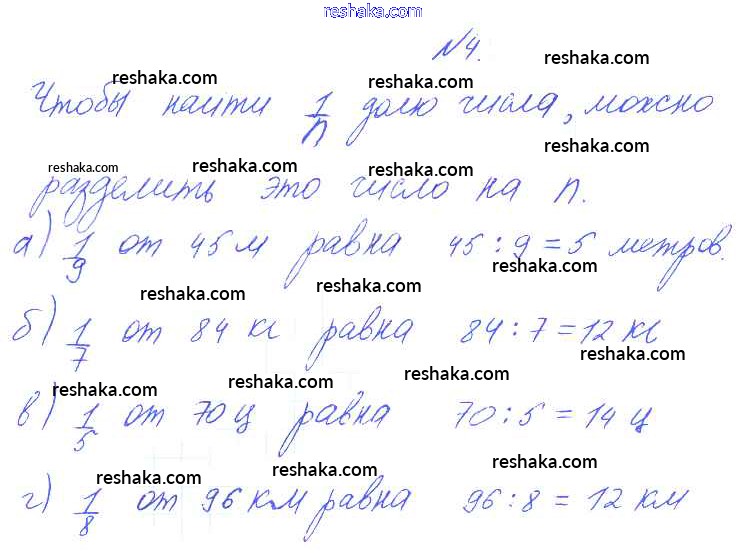 reshaka.com
№4.
reshaka.com
reshaka.com
reshaka.com
Чтобы найти 1/n долю числа, можно
reshaka.com
reshaka.com
reshaka.com
reshaka.com
разделить это число на n.
reshaka.com
reshaka.com
а) 1/9 от 45 м равна 45 : 9 = 5 метров.
reshaka.com
reshaka.com
reshaka.com
б) 1/7 от 84 кг равна 84 : 7 = 12 кг
reshaka.com
reshaka.com
reshaka.com
в) 1/5 от 70 ц равна 70 : 5 = 14 ц
reshaka.com
reshaka.com
reshaka.com
г) 1/8 от 96 км равна 96 : 8 = 12 км
reshaka.com
reshaka.com
reshaka.com